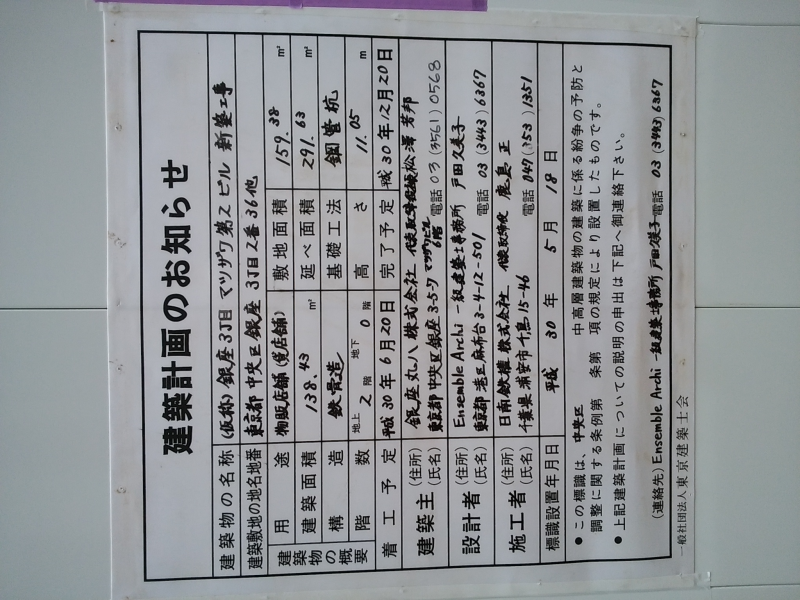 建築計画のお知らせ
建築物の名称 (仮称) 銀座3丁目 マツザワ第2ビル 新築工事
建築敷地の地名地番 東京都 中央区 銀座 3丁目 2番 36他
建築物の概要
用途 物販店舗(貸店舗) 敷地面積 159.38 ㎡
建築面積 138.43 ㎡ 延べ面積 291.63 ㎡
構造 鉄骨造 基礎工法 鋼管杭
階数 地上 2 階 地下 0 階 高さ 11.05 m
着工予定 平成 30年 6月 20日 完了予定 平成 30年 12月 20日
建築主 (住所) (氏名) 銀座丸八 株式会社 代表取締役 松澤 芳邦
東京都 中央区 銀座 3-5-7 マツザワビル 6階 電話 03 (3561) 0568
設計者 (住所) (氏名) Ensemble Archi 一級建築士事務所 戸田 久美子
東京都 港区 麻布台 3-4-12-501 電話 03 (3443) 6367
施工者 (住所) (氏名) 日南鉄構 株式会社 代表取締役 鹿島 正
千葉県 浦安市 千鳥 15-46 電話 047 (353) 1351
標識設置年月日 平成 30 年 5 月 18 日
● この標識は、中央区 中高層建築物の建築に係る紛争の予防と
調整に関する条例第 条第 項の規定により設置したものです。
● 上記建築計画についての説明の申出は下記へ御連絡下さい。
(連絡先) Ensemble Archi 一級建築士事務所 戸田久美子 電話 03 (3443) 6367
一般社団法人 東京建築士会